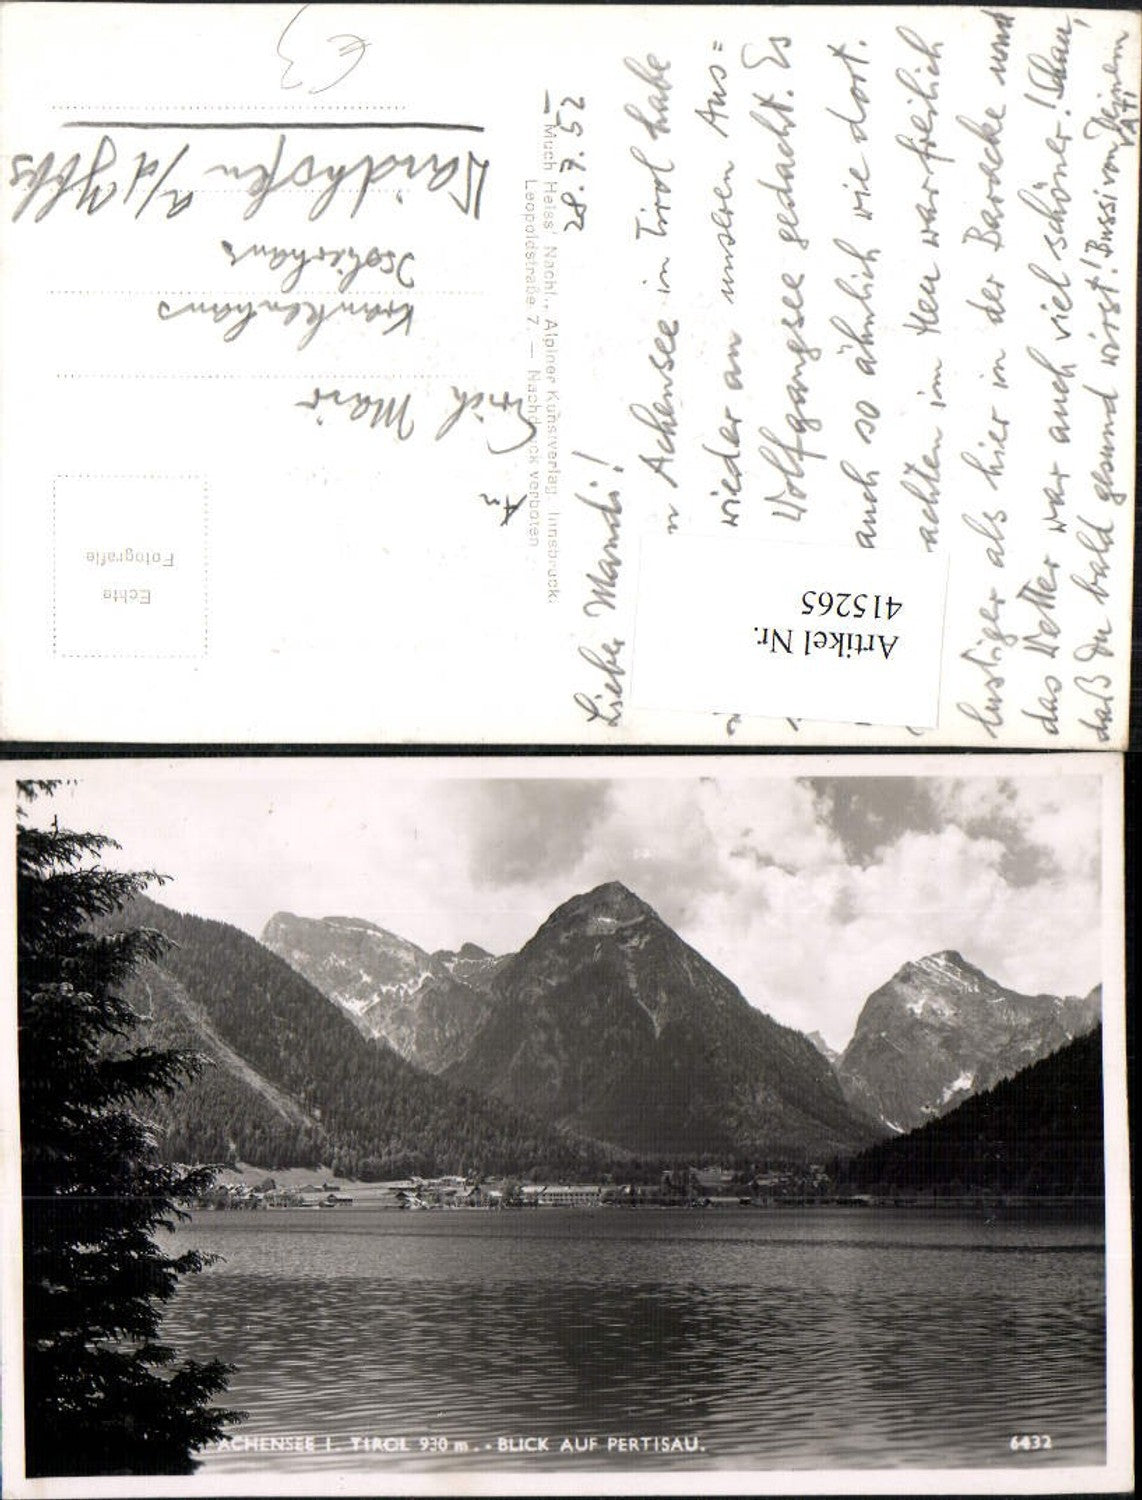 28.7.52
Lieber Mandi!
n Achensee in Tirol habe
wieder an unseren Aus=
Wolfgangsee gedacht. Es
auch so ähnlich wie dort.
achten im Heu war freilich
lustiger als hier in der Baracke und
das Wetter war auch viel schöner! Schau,
daß Du bald gesund wirst! Bussi von Deinem
VATI
Much Heiss' Nachf., Alpiner Kunstverlag, Innsbruck,
Leopoldstraße 7. — Nachdruck verboten
Echte
Fotografie
An
Erich Mair
Krankenhaus
Isolierhaus
Waidhofen a/d Ybbs
€3
Artikel Nr.
415265
ACHENSEE I. TIROL 930 m. - BLICK AUF PERTISAU.
6432